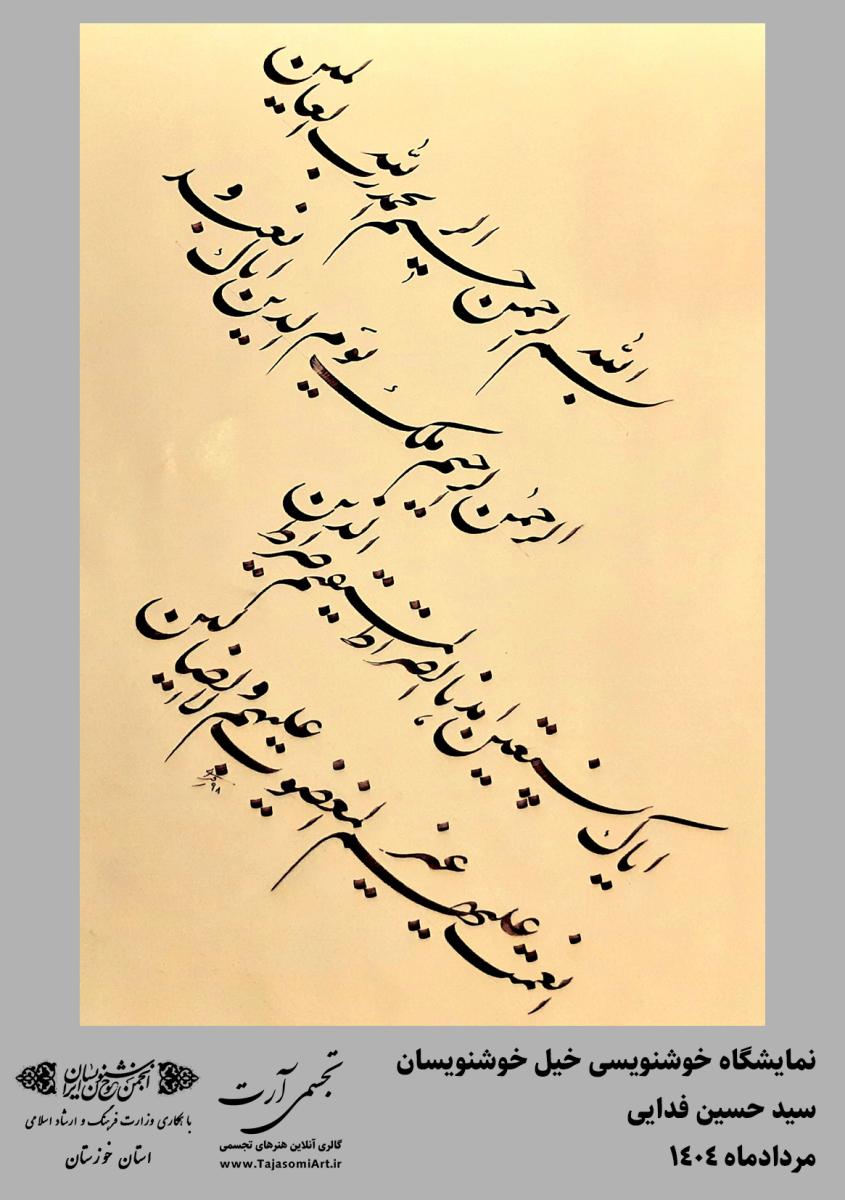 بسم الله الرحمن الرحیم الحمدلله رب العالمین
الرحمن الرحیم ملک یوم الدین ایاک نعبد و
ایاک نستعین اهدنا الصراط المستقیم صراط الذین
انعمت علیهم غیر المغضوب علیهم و لاالضالین
۹۸
نمایشگاه خوشنویسی خیل خوشنویسان
سید حسین فدایی
مردادماه ۱۴۰۴
تجسمی آرت
گالری آنلاین هنرهای تجسمی
www.TajasomiArt.ir
انجمن خوشنویسان ایران
با همکاری وزارت فرهنگ و ارشاد اسلامی
استان خوزستان